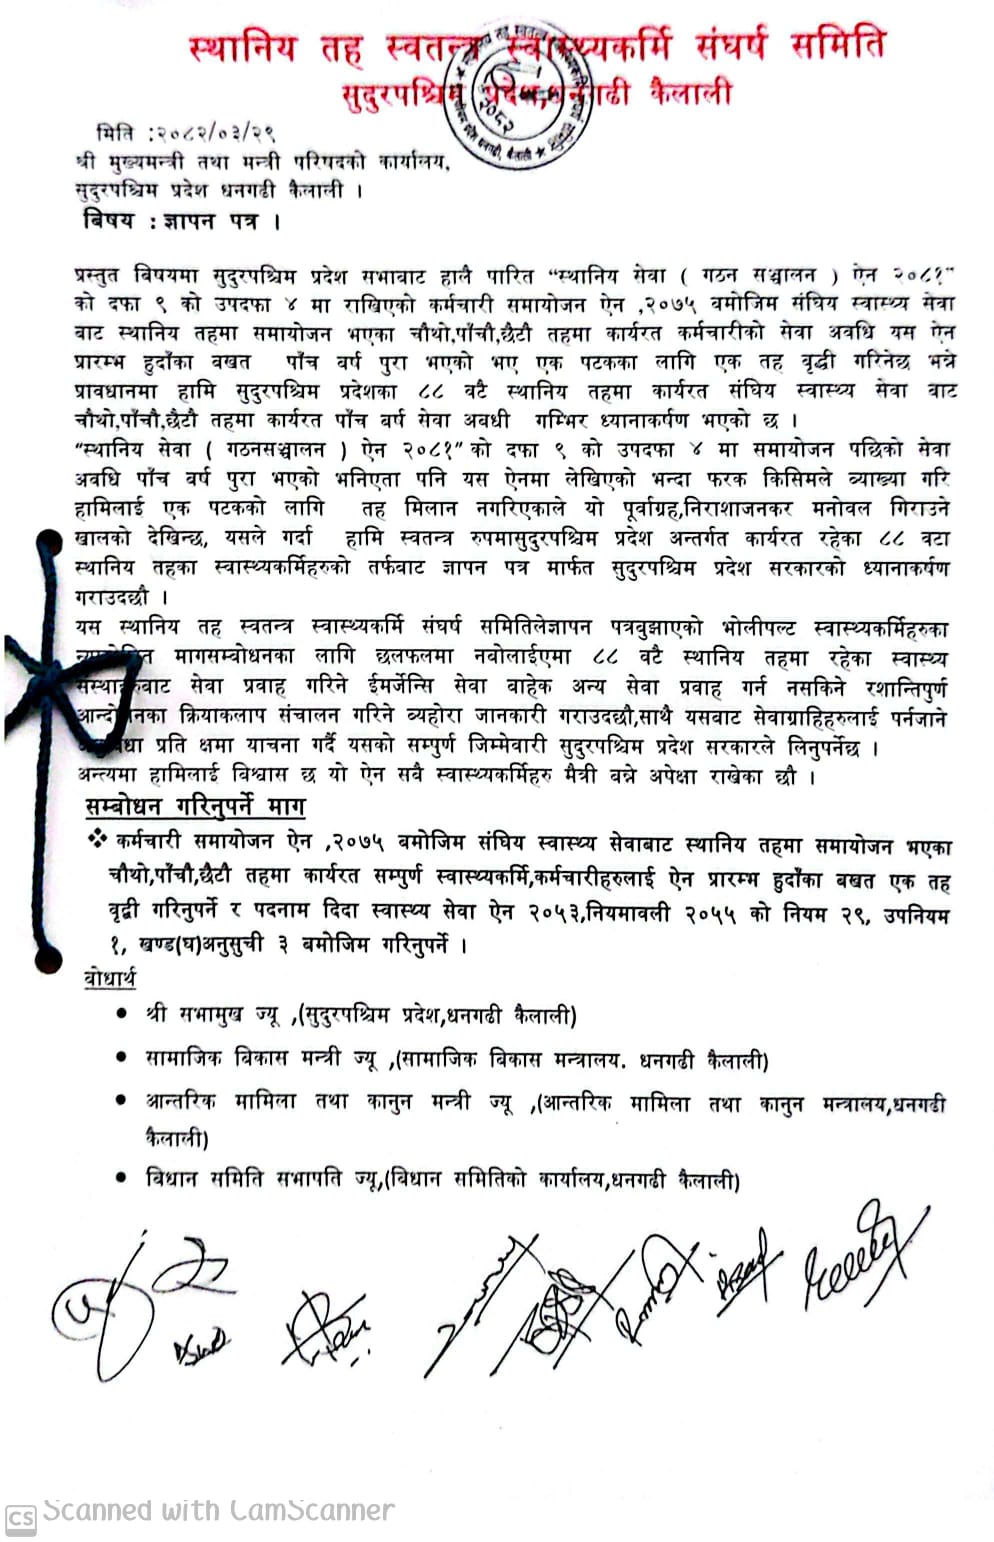 स्थानिय तह स्वतन्त्र स्वास्थ्यकर्मि संघर्ष समिति
सुदुरपश्चिम प्रदेश,धनगढी कैलाली
मिति :२०८२/०३/२९
श्री मुख्यमन्त्री तथा मन्त्री परिषदको कार्यालय,
सुदुरपश्चिम प्रदेश धनगढी कैलाली ।
बिषय : ज्ञापन पत्र ।
प्रस्तुत बिषयमा सुदुरपश्चिम प्रदेश सभाबाट हालै पारित "स्थानिय सेवा ( गठन सञ्चालन ) ऐन २०८१"
को दफा ९ को उपदफा ४ मा राखिएको कर्मचारी समायोजन ऐन ,२०७५ बमोजिम संघिय स्वास्थ्य सेवा
बाट स्थानिय तहमा समायोजन भएका चौथो,पाँचौ,छैटौ तहमा कार्यरत कर्मचारीको सेवा अवधि यस ऐन
प्रारम्भ हुदाँका बखत पाँच वर्ष पुरा भएको भए एक पटकका लागि एक तह वृद्धी गरिनेछ भन्ने
प्रावधानमा हामि सुदुरपश्चिम प्रदेशका ८८ वटै स्थानिय तहमा कार्यरत संघिय स्वास्थ्य सेवा बाट
चौथो,पाँचौ,छैटौ तहमा कार्यरत पाँच बर्ष सेवा अबधी गम्भिर ध्यानाकर्षण भएको छ ।
"स्थानिय सेवा ( गठनसञ्चालन ) ऐन २०८१" को दफा ९ को उपदफा ४ मा समायोजन पछिको सेवा
अवधि पाँच वर्ष पुरा भएको भनिएता पनि यस ऐनमा लेखिएको भन्दा फरक किसिमले व्याख्या गरि
हामिलाई एक पटकको लागि तह मिलान नगरिएकाले यो पूर्वाग्रह,निराशाजनकर मनोवल गिराउने
खालको देखिन्छ, यसले गर्दा हामि स्वतन्त्र रुपमासुदुरपश्चिम प्रदेश अन्तर्गत कार्यरत रहेका ८८ वटा
स्थानिय तहका स्वास्थ्यकर्मिहरुको तर्फबाट ज्ञापन पत्र मार्फत सुदुरपश्चिम प्रदेश सरकारको ध्यानाकर्षण
गराउदछौ ।
यस स्थानिय तह स्वतन्त्र स्वास्थ्यकर्मि संघर्ष समितिलेज्ञापन पत्रबुझाएको भोलीपल्ट स्वास्थ्यकर्मिहरुका
मागसम्बोधनका लागि छलफलमा नवोलाईएमा ८८ वटै स्थानिय तहमा रहेका स्वास्थ्य
सेवा प्रवाह गरिने ईमर्जेन्सि सेवा बाहेक अन्य सेवा प्रवाह गर्न नसकिने रशान्तिपुर्ण
क्रियाकलाप संचालन गरिने व्यहोरा जानकारी गराउदछौ,साथै यसबाट सेवाग्राहिहरुलाई पर्नजाने
प्रति क्षमा याचना गर्दै यसको सम्पुर्ण जिम्मेवारी सुदुरपश्चिम प्रदेश सरकारले लिनुपर्नेछ ।
अन्त्यमा हामिलाई बिश्वास छ यो ऐन सवै स्वास्थ्यकर्मिहरु मैत्री बन्ने अपेक्षा राखेका छौ ।
सम्बोधन गरिनुपर्ने माग
❖ कर्मचारी समायोजन ऐन ,२०७५ बमोजिम संघिय स्वास्थ्य सेवाबाट स्थानिय तहमा समायोजन भएका
चौथो,पाँचौ,छैटौ तहमा कार्यरत सम्पुर्ण स्वास्थ्यकर्मि,कर्मचारीहरुलाई ऐन प्रारम्भ हुदाँका बखत एक तह
वृद्वी गरिनुपर्ने र पदनाम दिदा स्वास्थ्य सेवा ऐन २०५३,नियमावली २०५५ को नियम २९, उपनियम
१, खण्ड(घ)अनुसुची ३ बमोजिम गरिनुपर्ने ।
वोधार्थ
• श्री सभामुख ज्यू ,(सुदुरपश्चिम प्रदेश,धनगढी कैलाली)
• सामाजिक बिकास मन्त्री ज्यू ,(सामाजिक बिकास मन्त्रालय. धनगढी कैलाली)
• आन्तरिक मामिला तथा कानुन मन्त्री ज्यू ,(आन्तरिक मामिला तथा कानुन मन्त्रालय,धनगढी
कैलाली)
• बिधान समिति सभापति ज्यू,(बिधान समितिको कार्यालय,धनगढी कैलाली)
CS Scanned with CamScanner